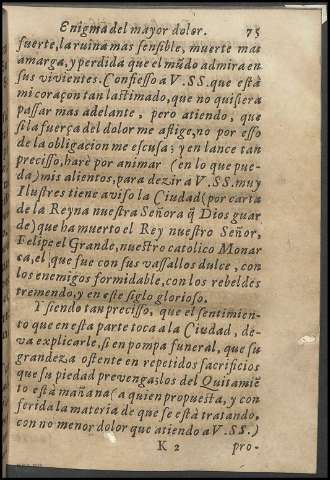 Enigma del mayor dolor. 75
fuerte, la ruina mas sensible, muerte mas
amarga, y perdida que el mũdo admira en
sus vivientes. Confiesso a V. SS. que està
mi coraçon tan lastimado, que no quisiera
passar mas adelante, pero atiendo, que
si la fuerça del dolor me aflige, no por esso
de la obligacion me escusa; y en lance tan
precisso, harè por animar (en lo que pue-
da) mis alientos, para dezir a V. SS. muy
Ilustres tiene aviso la Ciudad (por carta
de la Reyna nuestra Señora q̃ Dios guar
de) que ha muerto el Rey nuestro Señor,
Felipe el Grande, nuestro catolico Monar
ca, el que fue con sus vassallos dulce, con
los enemigos formidable, con los rebeldes
tremendo, y en este siglo glorioso.
Y siendo tan precisso, que el sentimien-
to que en esta parte toca a la Ciudad, de-
va explicarle, si en pompa funeral, que su
grandeza ostente en repetidos sacrificios
que su piedad prevenga; los del Quitamiē
to està mañana (a quien propuesta, y con
ferida la materia de que se està tratando,
con no menor dolor que atiendo a V. SS.)
K 2 pro-